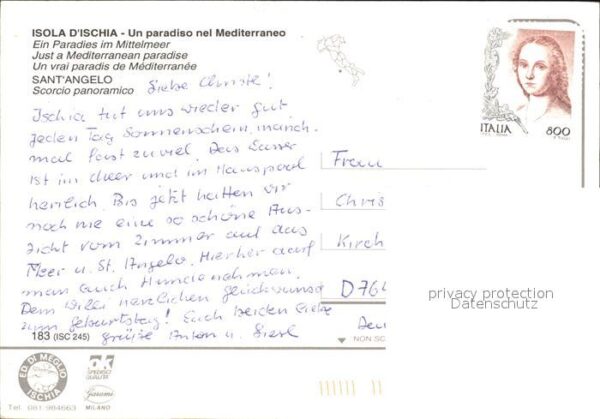 ISOLA D'ISCHIA - Un paradiso nel Mediterraneo
Ein Paradies im Mittelmeer
Just a Mediterranean paradise
Un vrai paradis de Méditerranée
SANT'ANGELO
Scorcio panoramico
Liebe Christe!
Ischia tut uns wieder gut
jeden Tag Sonnenschein, manch-
mal fast zuviel. Das Wasser
ist im Meer und im Hauspool
herrlich. Bis jetzt hatten wir
noch nie eine so schöne Aus-
sicht vom Zimmer auf das
Meer u. St. Angelo. Hierher darf
man auch Hunde nehmen.
Dem Willi herzlichen Glückwunsch
zum Geburtstag! Euch beiden liebe
Grüße Anton u. Liesl
Frau
Chris
Kirch
D 764
Deu
ITALIA
800
privacy protection
Datenschutz
183 (ISC 245)
NON SC
ED. DI MEGLIO
ISCHIA
Garami
MILANO
Tel. 081 984663